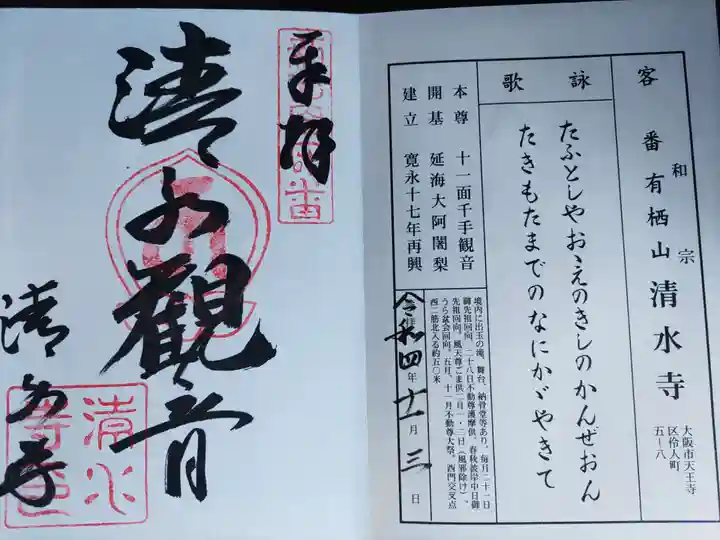 客番
和宗
有栖山 清水寺
大阪市天王寺
区伶人町
五ー八
詠歌
たふとしやおゝえのきしのかんぜおん
たきもたまでのなにかゞやきて
本尊 十一面千手観音
開基 延海大阿闍梨
建立 寛永十七年再興
境内に出玉の滝、舞台、納骨堂等あり、毎月二十一日
御先祖回向、二十八日不動尊護摩供、春秋彼岸中日御
先祖回向。風天尊ごま供二月一・二日(風邪除け)、
うら盆会回向。五月、十一月不動尊大祭。西門交叉点
西二筋北入る約五〇米
令和四年十一月三日
奉拝
清水觀音
清水寺
清水
寺印